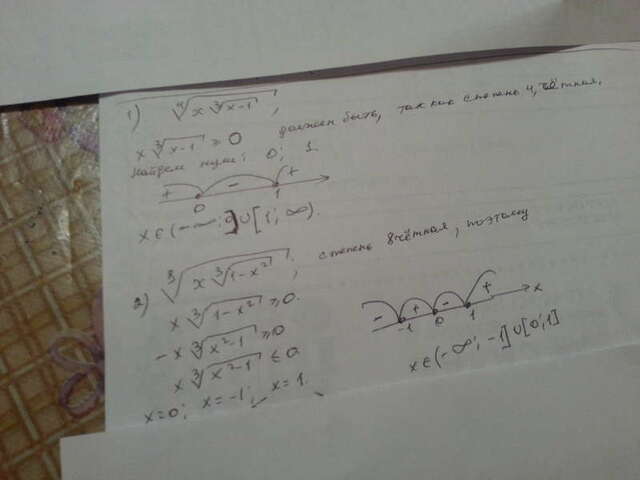 1) ∜(x ∛(x-1)),
x ∛(x-1) ≥ 0 должен быть, так как степень 4, чётная.
Найдем нули: 0; 1.
+ - +
0 1
x ∈ (-∞; 0] ∪ [1; ∞).
2) ⁸√(x ∛(1-x²)); степень 8 чётная, поэтому
x ∛(1-x²) ≥ 0.
-x ∛(x²-1) ≥ 0
x ∛(x²-1) ≤ 0
x=0; x=-1; x=1.
- + - + x
-1 0 1
x ∈ (-∞; -1] ∪ [0; 1]